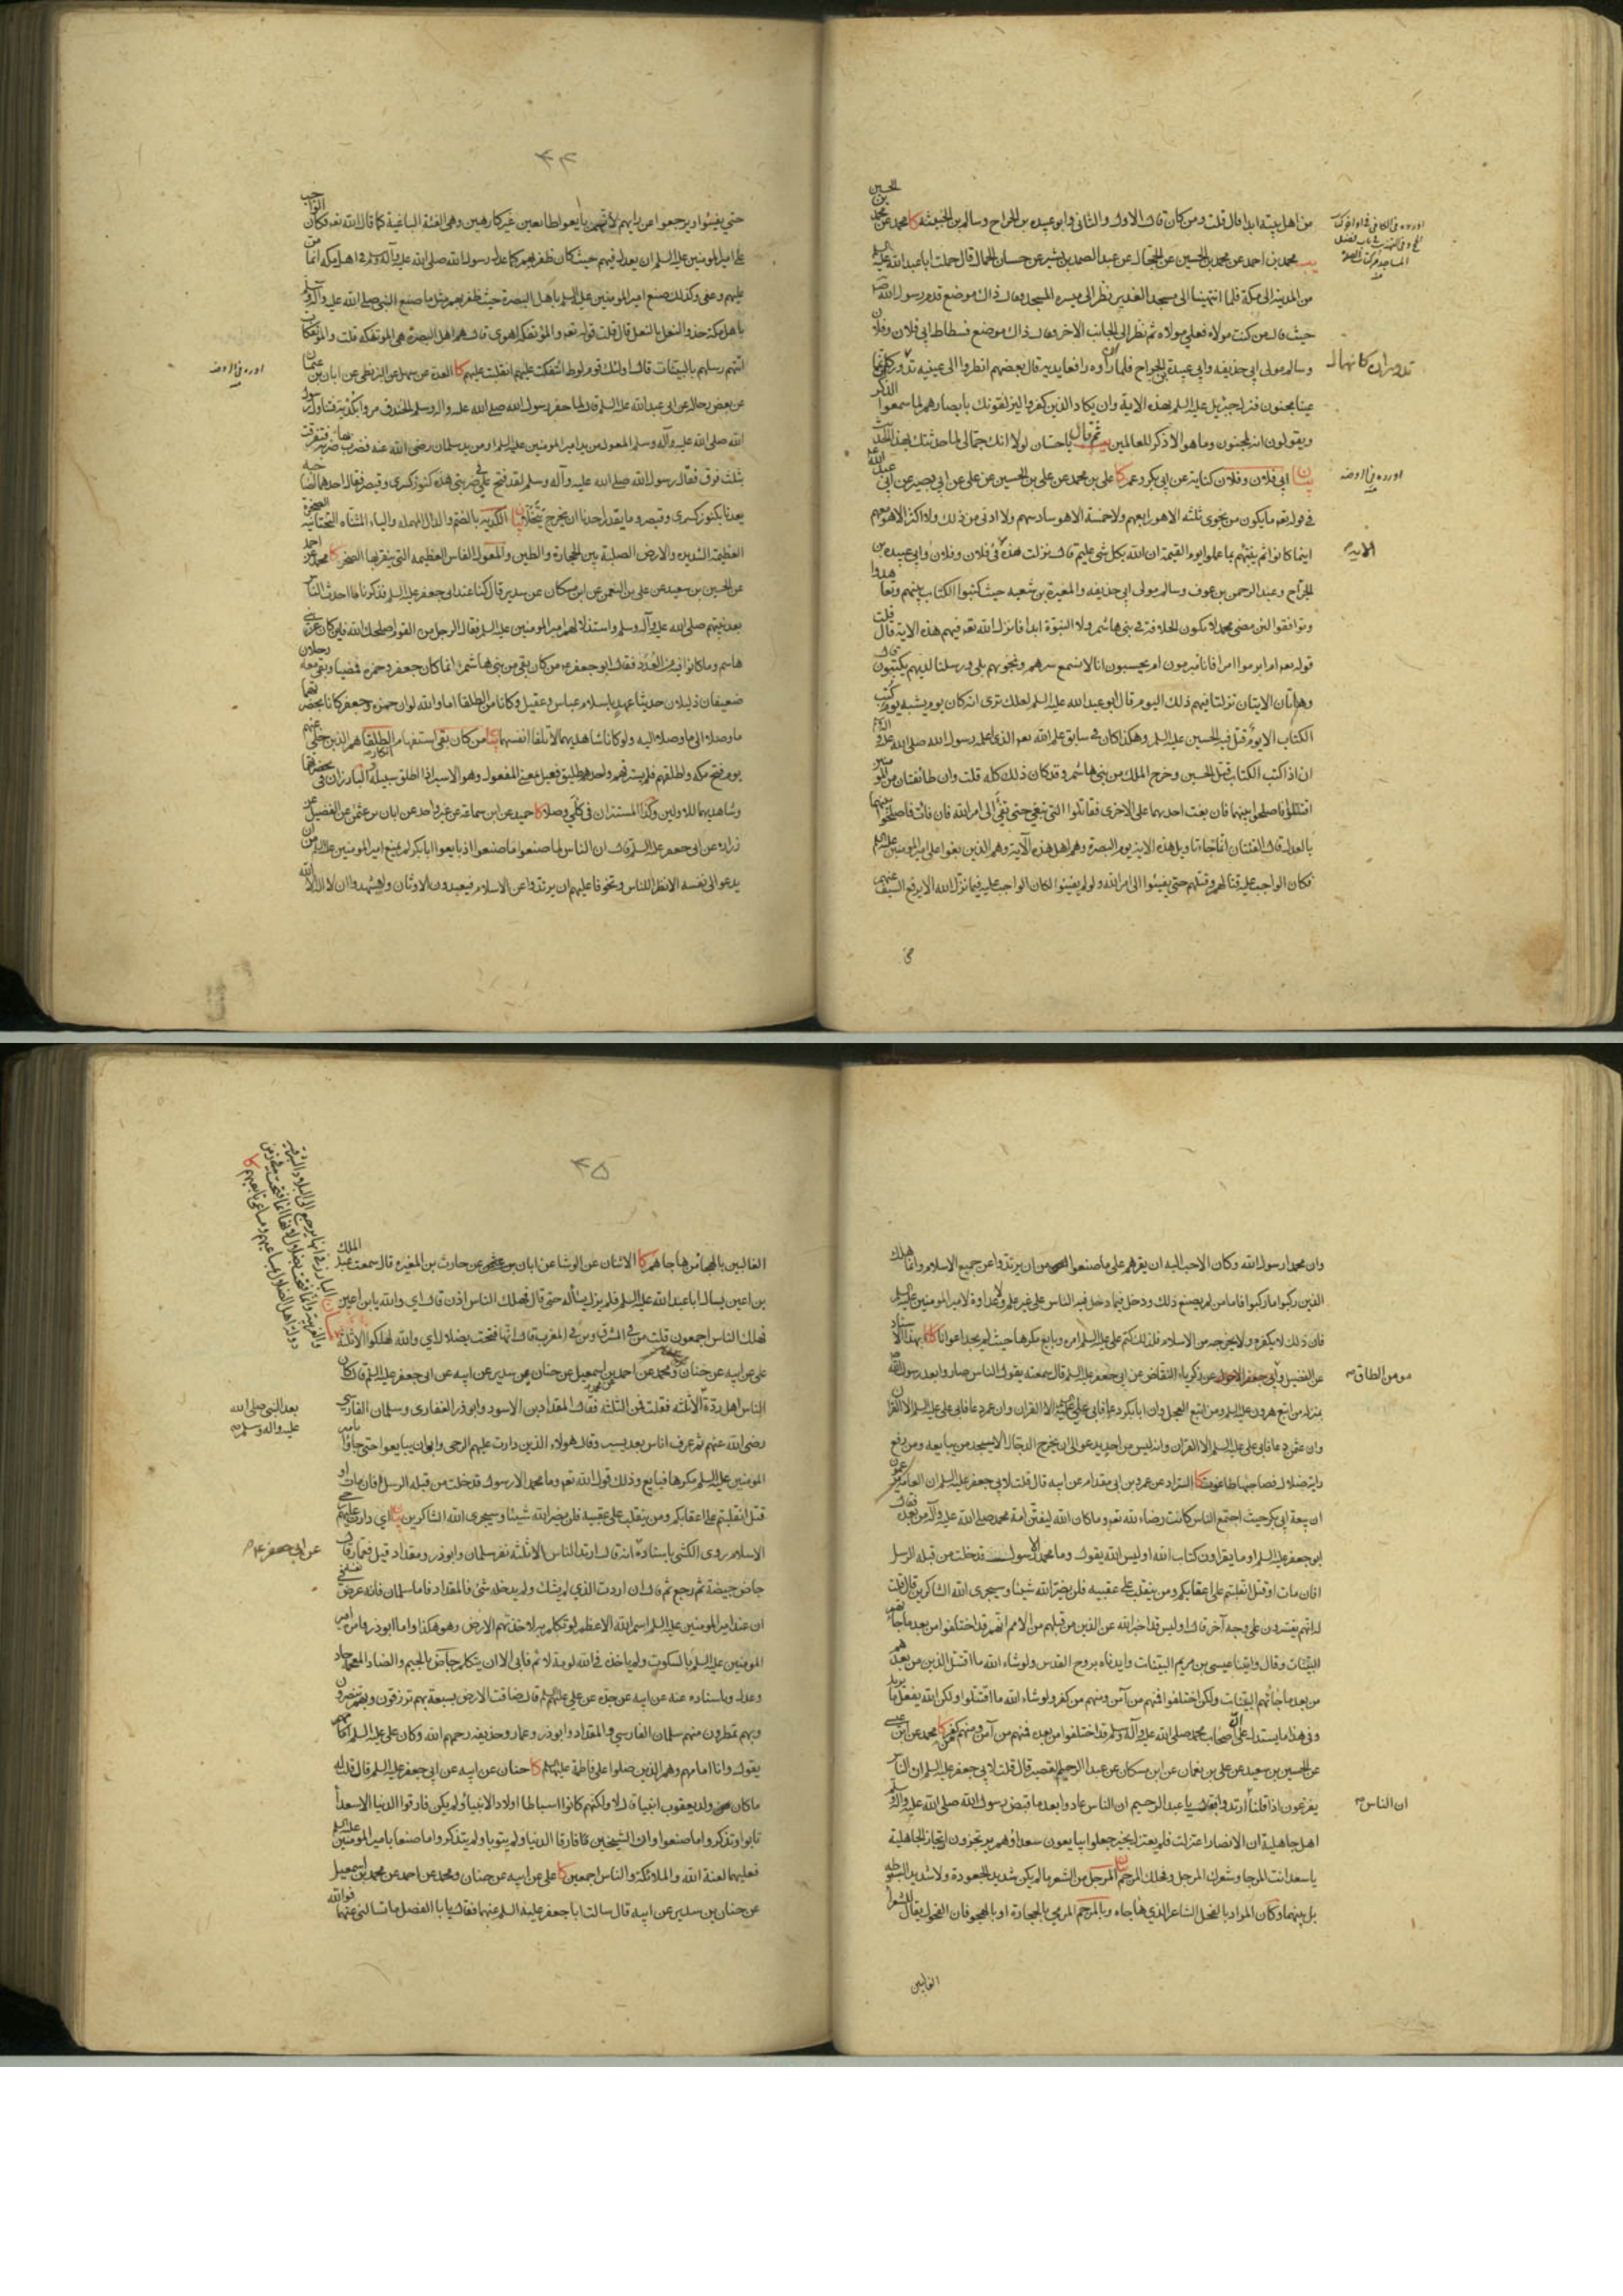 من اهل بيته ابدا قال قلت ومن كان قال الاول والثاني وابو عبيده بن الجراح وسالم بن الحبيبه كا محمد عن محمد بن الحسين
يب محمد بن احمد عن محمد بن الحسين عن الحجال عن عبد الصمد بن بشير عن حسان الجمال قال حملت ابا عبد الله عليه السلم
من المدينة الى مكة فلما انتهينا الى مسجد الغدير نظر الى ميسرة المسجد وقال ذاك موضع قدم رسول الله ص
حيث قال من كنت مولاه فعلي مولاه ثم نظر الى الجانب الاخر وقال ذاك موضع فسطاط ابي فلان وفلان
وسالم مولى ابي حذيفه وابي عبيدة بن الجراح فلما ان راوه رافعا يديه قال بعضهم انظروا الى عينيه تدور كانهما
عينا مجنون فنزل جبرئيل عليه السلم بهذه الاية وان يكاد الذين كفروا ليزلقونك بابصارهم لما سمعوا الذكر
ويقولون انه لمجنون وما هو الا ذكر للعالمين ثم قال يا حسان لولا انك جمالي لما حدثتك بهذا الحديث
بيان ابي فلان وفلان كناية عن ابي بكر وعمر كا علي بن محمد عن علي بن الحسين عن علي عن ابي بصير عن ابي عبد الله
في قوله تعه ما يكون من نجوى ثلثه الا هو رابعهم ولا خمسة الا هو سادسهم ولا ادنى من ذلك ولا اكثر الا هو معهم
اينما كانوا ثم ينبئهم بما عملوا يوم القيمة ان الله بكل شي عليم قال نزلت هذه في فلان وفلان وابي عبيده بن
الجراح وعبد الرحمن بن عوف وسالم مولى ابي حذيفه والمغيرة بن شعبه حيث كتبوا الكتاب بينهم وتعاهدوا
وتوافقوا لئن مضى محمد لا تكون الخلافة في بني هاشم ولا النبوة ابدا فانزل الله تعه فيهم هذه الاية قال قلت
قوله تعه ام ابرموا امرا فانا مبرمون ام يحسبون انا لا نسمع سرهم ونجويهم بلى ورسلنا لديهم يكتبون قال
وهاتان الايتان نزلتا فيهم ذلك اليوم قال ابو عبد الله عليه السلم لعلك ترى انه كان يوم يشبه يوم كتب
الكتاب الا يوم قتل فيه الحسين عليه السلم وهكذا كان في سابق علم الله تعه الذي اعلمه رسول الله صلى الله عليه وآله
ان اذا كتب الكتاب قتل الحسين وخرج الملك من بني هاشم وقد كان ذلك كله قلت وان طائفتان من المومنين
اقتتلوا فاصلحوا بينهما فان بغت احديهما على الاخرى فقاتلوا التي تبغي حتى تفئ الى امر الله فان فاءت فاصلحوا بينهما
بالعدل قال الفئتان انما جاء تاويل هذه الاية يوم البصرة وهم اهل هذه الآية وهم الذين بغوا على امير المومنين عليه السلم
فكان الواجب عليه قتالهم وقتلهم حتى يفيئوا الى امر الله ولو لم يفيئوا لكان الواجب عليه فيما نزل الله الا يرفع السيف عنهم
اورده في الروضه
الايه
تدوران كانهما
٤٤
حتى يفيئوا ويرجعوا عن رايهم لانهم بايعوا طائعين غير كارهين وهى الفئة الباغية كما قال الله تعه فكان الواجب
على امير المومنين عليه السلم ان يعدل فيهم حيث كان ظفر بهم كما عدل رسول الله صلى الله عليه وآله وسلم في اهل مكه انما من
عليهم وعفى وكذلك صنع امير المومنين عليه السلم باهل البصرة حيث ظفر بهم مثل ما صنع النبي صلى الله عليه وآله وسلم
باهل مكة حذو النعل بالنعل قال قلت قوله تعه والمؤتفكة اهوى قال هم اهل البصرة هي المؤتفكه قلت والمؤتفكات
اتتهم رسلهم بالبينات قال اولئك قوم لوط ائتفكت عليهم انقلبت عليهم كا العدة عن سهل عن البزنطي عن ابان بن عثمان
عن بعض رجاله عن ابي عبد الله عليه السلم قال لما حفر رسول الله صلى الله عليه وآله وسلم الخندق مروا بكدية فتناول رسول
الله صلى الله عليه وآله وسلم المعول من يد امير المومنين عليه السلم او من يد سلمان رضى الله عنه فضرب بها ضربة فتفرقت
بثلث فرق فقال رسول الله صلى الله عليه وآله وسلم لقد فتح علي في ضربتي هذه كنوز كسرى وقيصر فقال احدهما لصاحبه
يعدنا بكنوز كسرى وقيصر وما يقدر احدنا ان يخرج يتخلى بيان الكديه بالضم والدال المهمله والياء المثناه التحتانيه الصخرة
العظيمة الشديده والارض الصلبة بين الحجارة والطين والمعول الفاس العظيمه التي ينقر بها الصخر كا محمد عن احمد
عن الحسين بن سعيد عن علي بن النعمن عن ابن مسكان عن سدير قال كنا عند ابي جعفر عليه السلم فذكرنا ما احدث الناس
بعد نبيهم صلى الله عليه وآله وسلم واستذلالهم امير المومنين عليه السلم فقال الرجل من القوم اصلحك الله فاين كان عز بني
هاشم وما كانوا فيه من العدد فقال ابو جعفر عه من كان بقي من بني هاشم انما كان جعفر وحمزه فمضيا وبقى معه رجلان
ضعيفان ذليلان حديثا عهد باسلام عباس وعقيل وكانا من الطلقا اما والله لو ان حمزه وجعفر كانا بحضرتهما
ما وصلا الى ما وصلا اليه ولو كانا شاهديهما لاتلفا انفسهما بيان من كان بقى استفهام الطلقا هم الذين خلى عنهم
يوم فتح مكه واطلقهم فلم يسترقهم واحدهم طليق فعيل بمعنى المفعول وهو الاسير اذا اطلق سبيله
وشاهديهما للاولين وكذا المستتران في كلتي وصلا كا حميد عن ابن سماعة عن غير واحد عن ابان بن عثمن عن الفضيل عن
زراره عن ابي جعفر عليه السلم قال ان الناس لما صنعوا ما صنعوا اذ بايعوا ابا بكر لم يمنع امير المومنين عليه السلم من ان
يدعو الى نفسه الا نظرا للناس وتخوفا عليهم ان يرتدوا عن الاسلام فيعبدون الاوثان ولا يشهدوا ان لا اله الا الله
اورده في الروضه
وان محمدا رسول الله وكان الاحب اليه ان يقرهم على ما صنعوا من ان يرتدوا عن جميع الاسلام وانما هلك
الذين ركبوا ما ركبوا فاما من لم يصنع ذلك ودخل فيما دخل فيه الناس على غير علم ولا عداوة لامير المومنين عليه السلم
فان ذلك لا يكفره ولا يخرجه من الاسلام فلذلك كتم علي عليه السلم امره وبايع مكرها حيث لم يجد اعوانا كا بهذا الاسناد
عن الفضيل عن زكرياء النقاض عن ابي جعفر عليه السلم قال سمعته يقول الناس صاروا بعد رسول الله ص
بمنزله من اتبع هرون عليه السلم ومن اتبع العجل وان ابا بكر دعا فابى علي عليه السلم الا القران وان عمر دعا فابى علي عليه السلم الا القران
وان عثمن دعا فابى علي عليه السلم الا القران وانه ليس من احد يدعو الى ان يخرج الدجال الا سيجد من يبايعه ومن رفع
راية ضلال فصاحبها طاغوت كا السراد عن عمرو بن ابي مقدام عن ابيه قال قلت لابي جعفر عليه السلم ان العامه يزعمون
ان بيعة ابي بكر حيث اجتمع الناس كانت رضاء لله تعه وما كان الله ليفتن امة محمد صلى الله عليه وآله من بعده فقال
ابو جعفر عليه السلم او ما يقراون كتاب الله او ليس الله يقول وما محمد الا رسول قد خلت من قبله الرسل
افان مات او قتل انقلبتم على اعقابكم ومن ينقلب على عقبيه فلن يضر الله شيئا وسيجزى الله الشاكرين قال قلت
له انهم يفسرون على وجه آخر قال او ليس قد اخبر الله عن الذين من قبلهم من الامم انهم قد اختلفوا من بعد ما جاءتهم
البينات وقال واتينا عيسى بن مريم البينات وايدناه بروح القدس ولو شاء الله ما اقتتل الذين من بعدهم
من بعد ما جاءتهم البينات ولكن اختلفوا فمنهم من آمن ومنهم من كفر ولو شاء الله ما اقتتلوا ولكن الله يفعل ما يريد
وفي هذا ما يستدل على ان اصحاب محمد صلى الله عليه وآله وسلم قد اختلفوا من بعده فمنهم من آمن ومنهم من كفر كا محمد عن ابن عيسى
عن الحسين بن سعيد عن علي بن نعمان عن ابن مسكان عن عبد الرحيم القصير قال قلت لابي جعفر عليه السلم ان الناس
يفزعون اذا قلنا ارتدوا فقال يا عبد الرحيم ان الناس عادوا بعد ما قبض رسول الله صلى الله عليه وآله وسلم
اهل جاهلية ان الانصار اعتزلت فلم يعتزل بخير جعلوا يبايعون سعدا وهم يرتجزون ارتجاز الجاهلية
يا سعد انت المرجا وشعرك المرجل وفحلك المرجم بيان المرجل من الشعر ما لم يكن شديد الجعودة ولا شديد السبوطه
بل بينهما وكان المراد بالفحل الشاعر الذي هاجاه وبالمرجم المرمي بالحجارة او بالهجو فان الفحول يقال للشعراء
الغالبين
مومن الطاق
ان الناس
٤٥
الغالبين بالهجا من هاجاهم كا الاثنان عن الوشا عن ابان بن عثمن عن حارث بن المغيره قال سمعت عبد الملك
بن اعين يسال ابا عبد الله عليه السلم فلم يزل يسأله حتى قال فهلك الناس اذن قال اي والله يا بن اعين
فهلك الناس اجمعون قلت من في المشرق ومن في المغرب قال انها فتحت بضلال اي والله لهلكوا الا ثلثة
علي عن ابيه عن حنان ومحمد عن احمد بن اسمعيل عن حنان بن سدير عن ابيه عن ابي جعفر عليه السلم قال كان
الناس اهل ردة الا ثلثه فقلت فمن الثلثه فقال المقداد بن الاسود وابو ذر الغفاري وسلمان الفارسي
رضى الله عنهم ثم عرف اناس بعد يسير وقال هولاء الذين دارت عليهم الرحى وابوا ان يبايعوا حتى جاؤا بامير
المومنين عليه السلم مكرها فبايع وذلك قول الله تعه وما محمد الا رسول قد خلت من قبله الرسل افان مات او
قتل انقلبتم على اعقابكم ومن ينقلب على عقبيه فلن يضر الله شيئا وسيجزى الله الشاكرين بيان اي دارت عليهم رحى
الاسلام روى الكشي باسناده انه قال ارتد الناس الا ثلثة نفر سلمان وابو ذر ومقداد قيل فعمار قال
جاض جيضة ثم رجع ثم قال ان اردت الذي لم يشك ولم يدخله شئ فالمقداد فاما سلمان فانه عرض في قلبه
ان عند امير المومنين عليه السلم اسم الله الاعظم لو تكلم به لاخذتهم الارض وهو هكذا واما ابو ذر فامره امير
المومنين عليه السلم بالسكوت ولم ياخذه في الله لومة لائم فابى الا ان يتكلم جاض بالجيم والضاد المعجمه حاد
وعدل وباسناده عنه عن ابيه عن جده عن علي عليهم السلم قال ضاقت الارض بسبعة بهم ترزقون وبهم تنصرون
وبهم تمطرون منهم سلمان الفارسي والمقداد وابو ذر وعمار وحذيفه رحمهم الله وكان علي عليه السلم
يقول وانا امامهم وهم الذين صلوا على فاطمة عليها السلم كا حنان عن ابيه عن ابي جعفر عليه السلم قال قلت له
ما كان ولد يعقوب انبياء قال لا ولكنهم كانوا اسباطا اولاد الانبياء ولم يكن فارقوا الدنيا الا سعداء
تابوا وتذكروا ما صنعوا وان الشيخين فارقا الدنيا ولم يتوبا ولم يتذكرا ما صنعا بامير المومنين عليه السلم
فعليهما لعنة الله والملائكة والناس اجمعين كا علي عن ابيه عن حنان ومحمد عن احمد عن محمد بن اسمعيل
عن حنان بن سدير عن ابيه قال سالت ابا جعفر عليه السلم عنهما فقال يا ابا الفضل ما تسالني عنهما فوالله
بعد النبي صلى الله
عليه واله وسلم
عن ابي جعفر ع